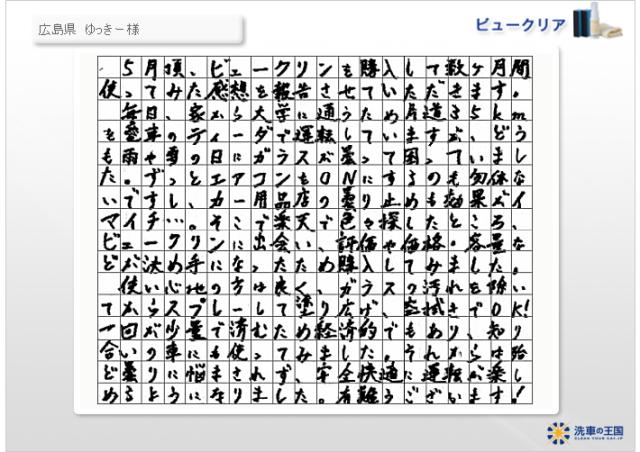 広島県 ゆっきー様
ビュークリア
5月頃、ビュークリンを購入して数ヶ月間
使ってみた感想を報告させていただきます。
毎日、家から大学に通うため片道35km
を愛車のティーダで運転していますが、どう
も雨や雪の日にガラスが曇って困っていまし
た。ずっとエアコンをONにするのも勿体な
いですし、カー用品店の曇り止めも効果がイ
マイチ…。そこで楽天で色々探したところ、
ビュークリンに出会い、評価や価格・容量な
どが決め手になったため購入してみました。
使い心地の方は良く、ガラスの汚れを除い
てからスプレーして塗り広げ、乾拭きでOK!
一回が少量で済むため経済的でもあり、知り
合いの車にも使ってみました。それからは殆
ど曇りに悩まされず、安全快適に運転が楽し
めるようになりました。有難うございます!
洗車の王国